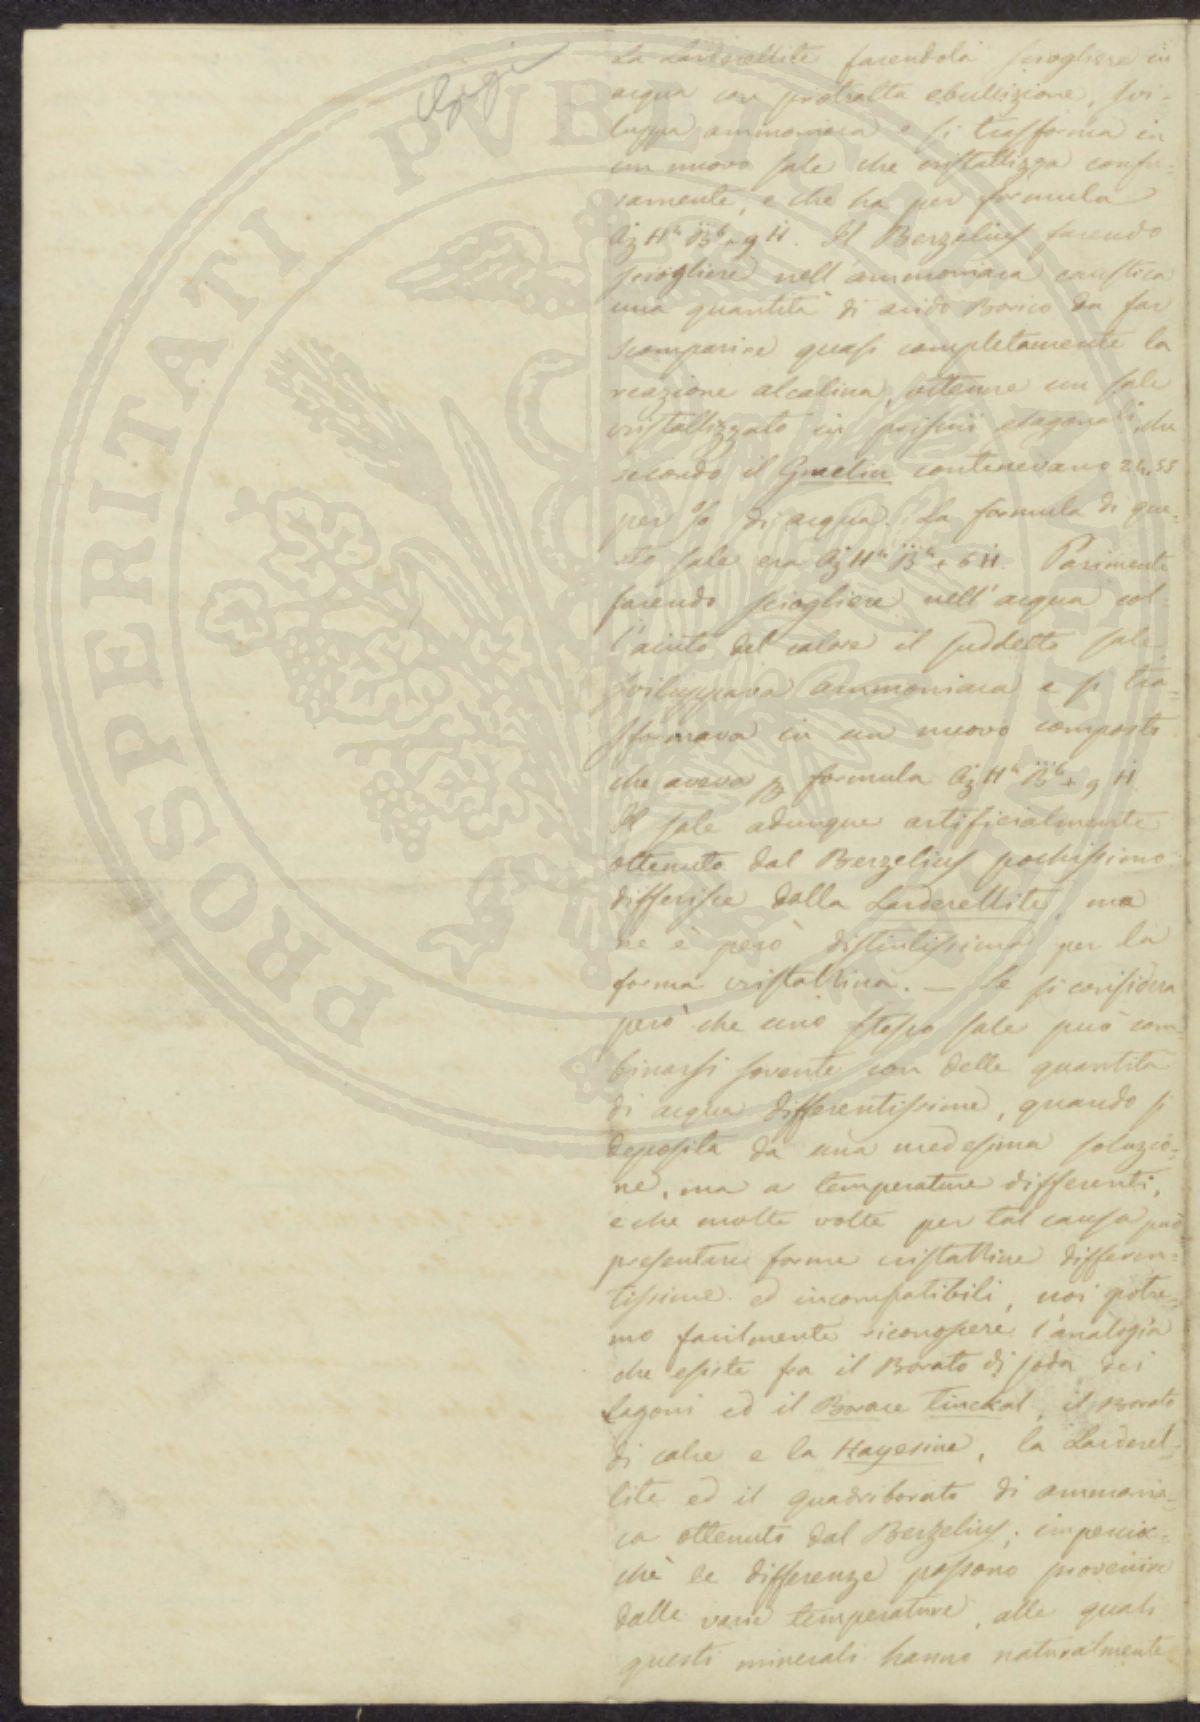 PROSPERITATI PUBLICAE
La Larderellite facendola sciogliere in
acqua con protratta ebullizione, svi-
luppa ammoniaca e si trasforma in
un nuovo sale che cristallizza confu-
samente, e che ha per formula
Az H⁴ B⁶ + 9 H. Il Berzelius facendo
sciogliere nell'ammoniaca caustica
una quantità di acido Borico da far
scomparire quasi completamente la
reazione alcalina, ottenne un sale
cristallizzato in prismi esagonali, che
secondo il Gmelin contenevano 24,55
per % di acqua. La formula di que-
sto sale era Az H⁴ B⁴ + 6 H. Parimente
facendo sciogliere nell'acqua col-
l'aiuto del calore il suddetto sale
sviluppava ammoniaca e si tra-
sformava in un nuovo composto
che aveva p formula Az H⁴ B⁶ + 9 H
Il sale adunque artificialmente
ottenuto dal Berzelius pochissimo
differisce dalla Larderellite, ma
ne è però distintissima per la
forma cristallina. — Se si considera
però che uno stesso sale può com-
binarsi sovente con delle quantità
di acqua differentissime, quando si
deposita da una medesima soluzio-
ne, ma a temperature differenti,
e che molte volte per tal causa può
presentare forme cristalline differen-
tissime ed incompatibili, noi potre-
mo facilmente riconoscere l'analogia
che esiste fra il Borato di soda dei
Lagoni ed il Borace Tinckal, il Borato
di calce e la Hayesine, la Larderel-
lite ed il quadriborato di ammonia-
ca ottenuto dal Berzelius; impercioc-
chè le differenze possono provenire
dalle varie temperature, alle quali
questi minerali hanno naturalmente